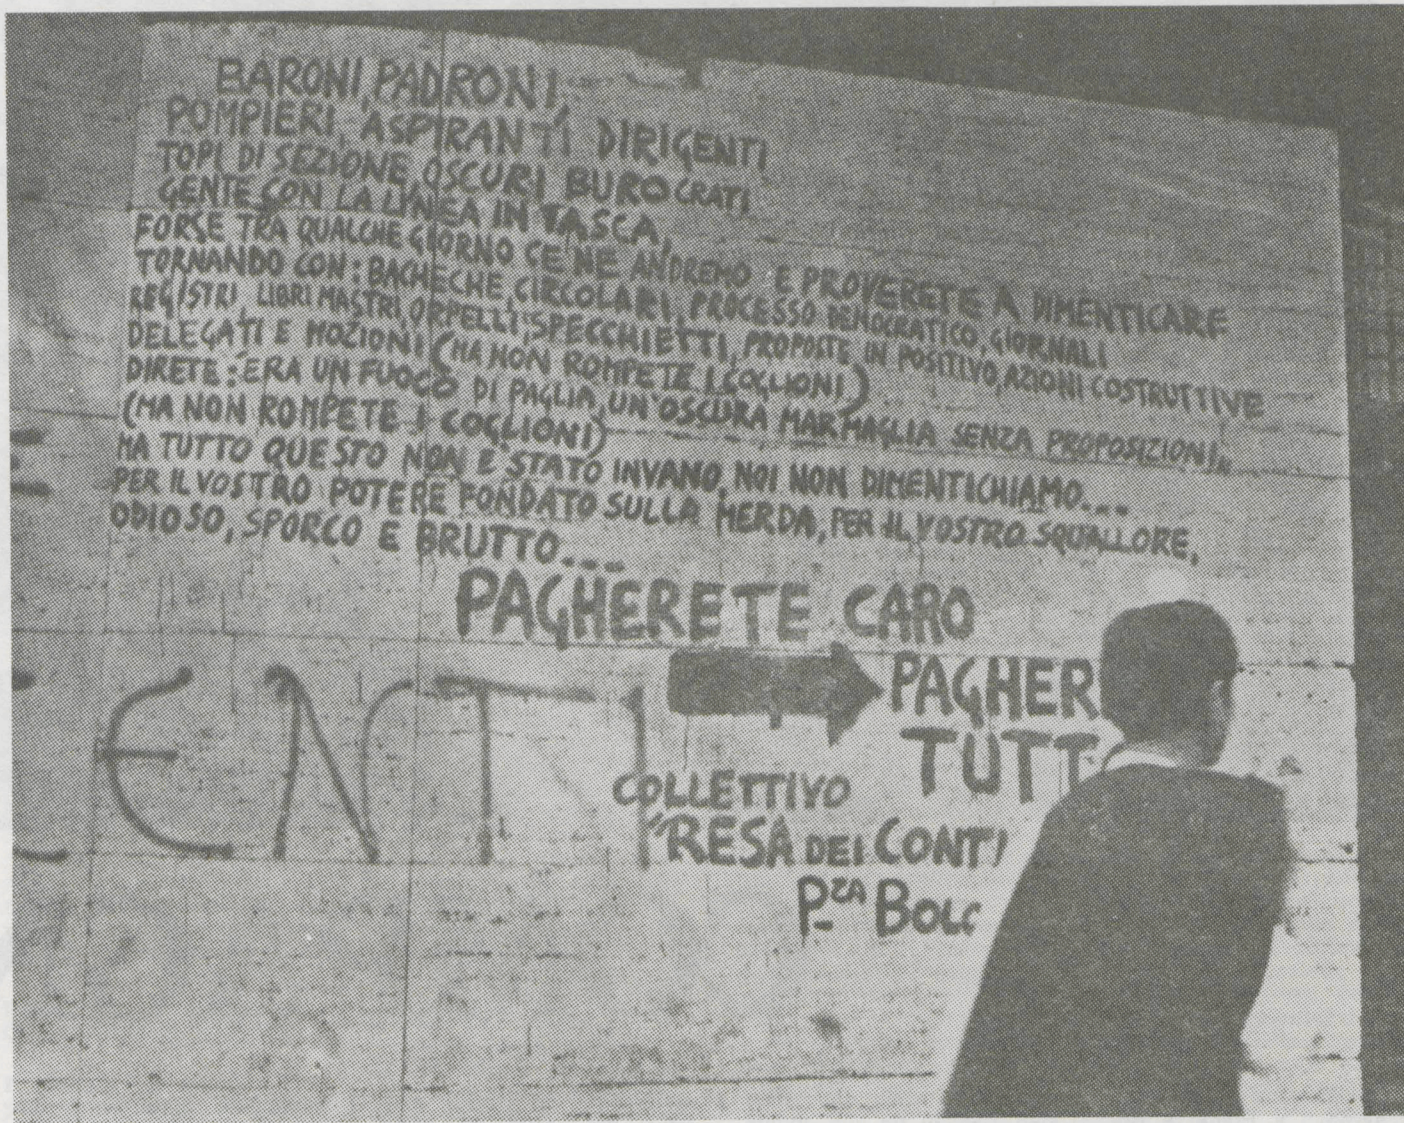 BARONI, PADRONI,
POMPIERI, ASPIRANTI DIRIGENTI
TOPI DI SEZIONE, OSCURI BUROCRATI
GENTE CON LA LINEA IN TASCA,
FORSE TRA QUALCHE GIORNO CE NE ANDREMO E PROVERETE A DIMENTICARE
TORNANDO CON: BACHECHE, CIRCOLARI, PROCESSO DEMOCRATICO, GIORNALI
REGISTRI, LIBRI MASTRI, ORPELLI, SPECCHIETTI, PROPOSTE IN POSITIVO, AZIONI COSTRUTTIVE
DELEGATI E MOZIONI (MA NON ROMPETE I COGLIONI)
DIRETE: ERA UN FUOCO DI PAGLIA, UN'OSCURA MARMAGLIA SENZA PROPOSIZIONI..
(MA NON ROMPETE I COGLIONI)
MA TUTTO QUESTO NON E' STATO INVANO, NOI NON DIMENTICHIAMO...
PER IL VOSTRO POTERE FONDATO SULLA MERDA, PER IL VOSTRO SQUALLORE,
ODIOSO, SPORCO E BRUTTO....
PAGHERETE CARO
PAGHER
TUTT
ENTI
COLLETTIVO
"RESA DEI CONTI
P.ZA BOLC